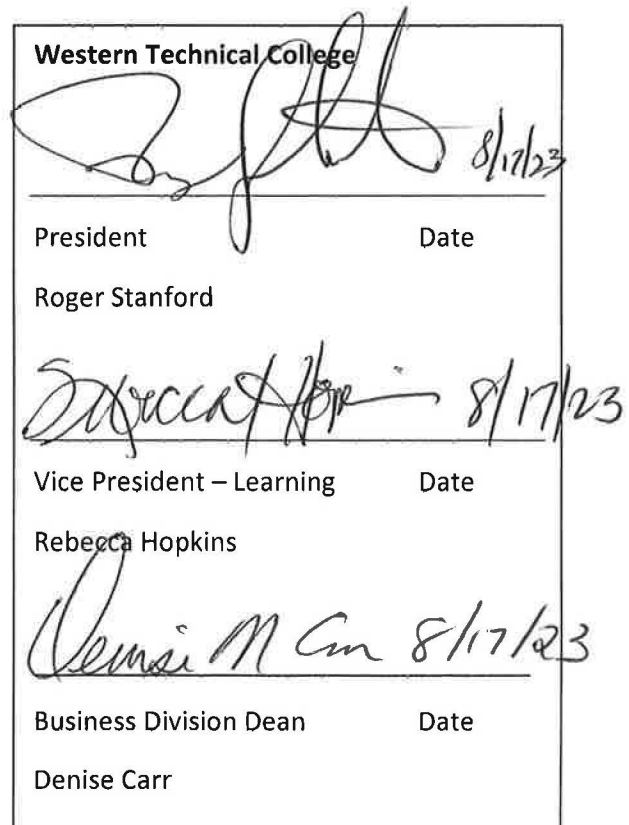 Western Technical College
8/17/23
President Date
Roger Stanford
8/17/23
Vice President – Learning Date
Rebecca Hopkins
Denise M Carr 8/17/23
Business Division Dean Date
Denise Carr